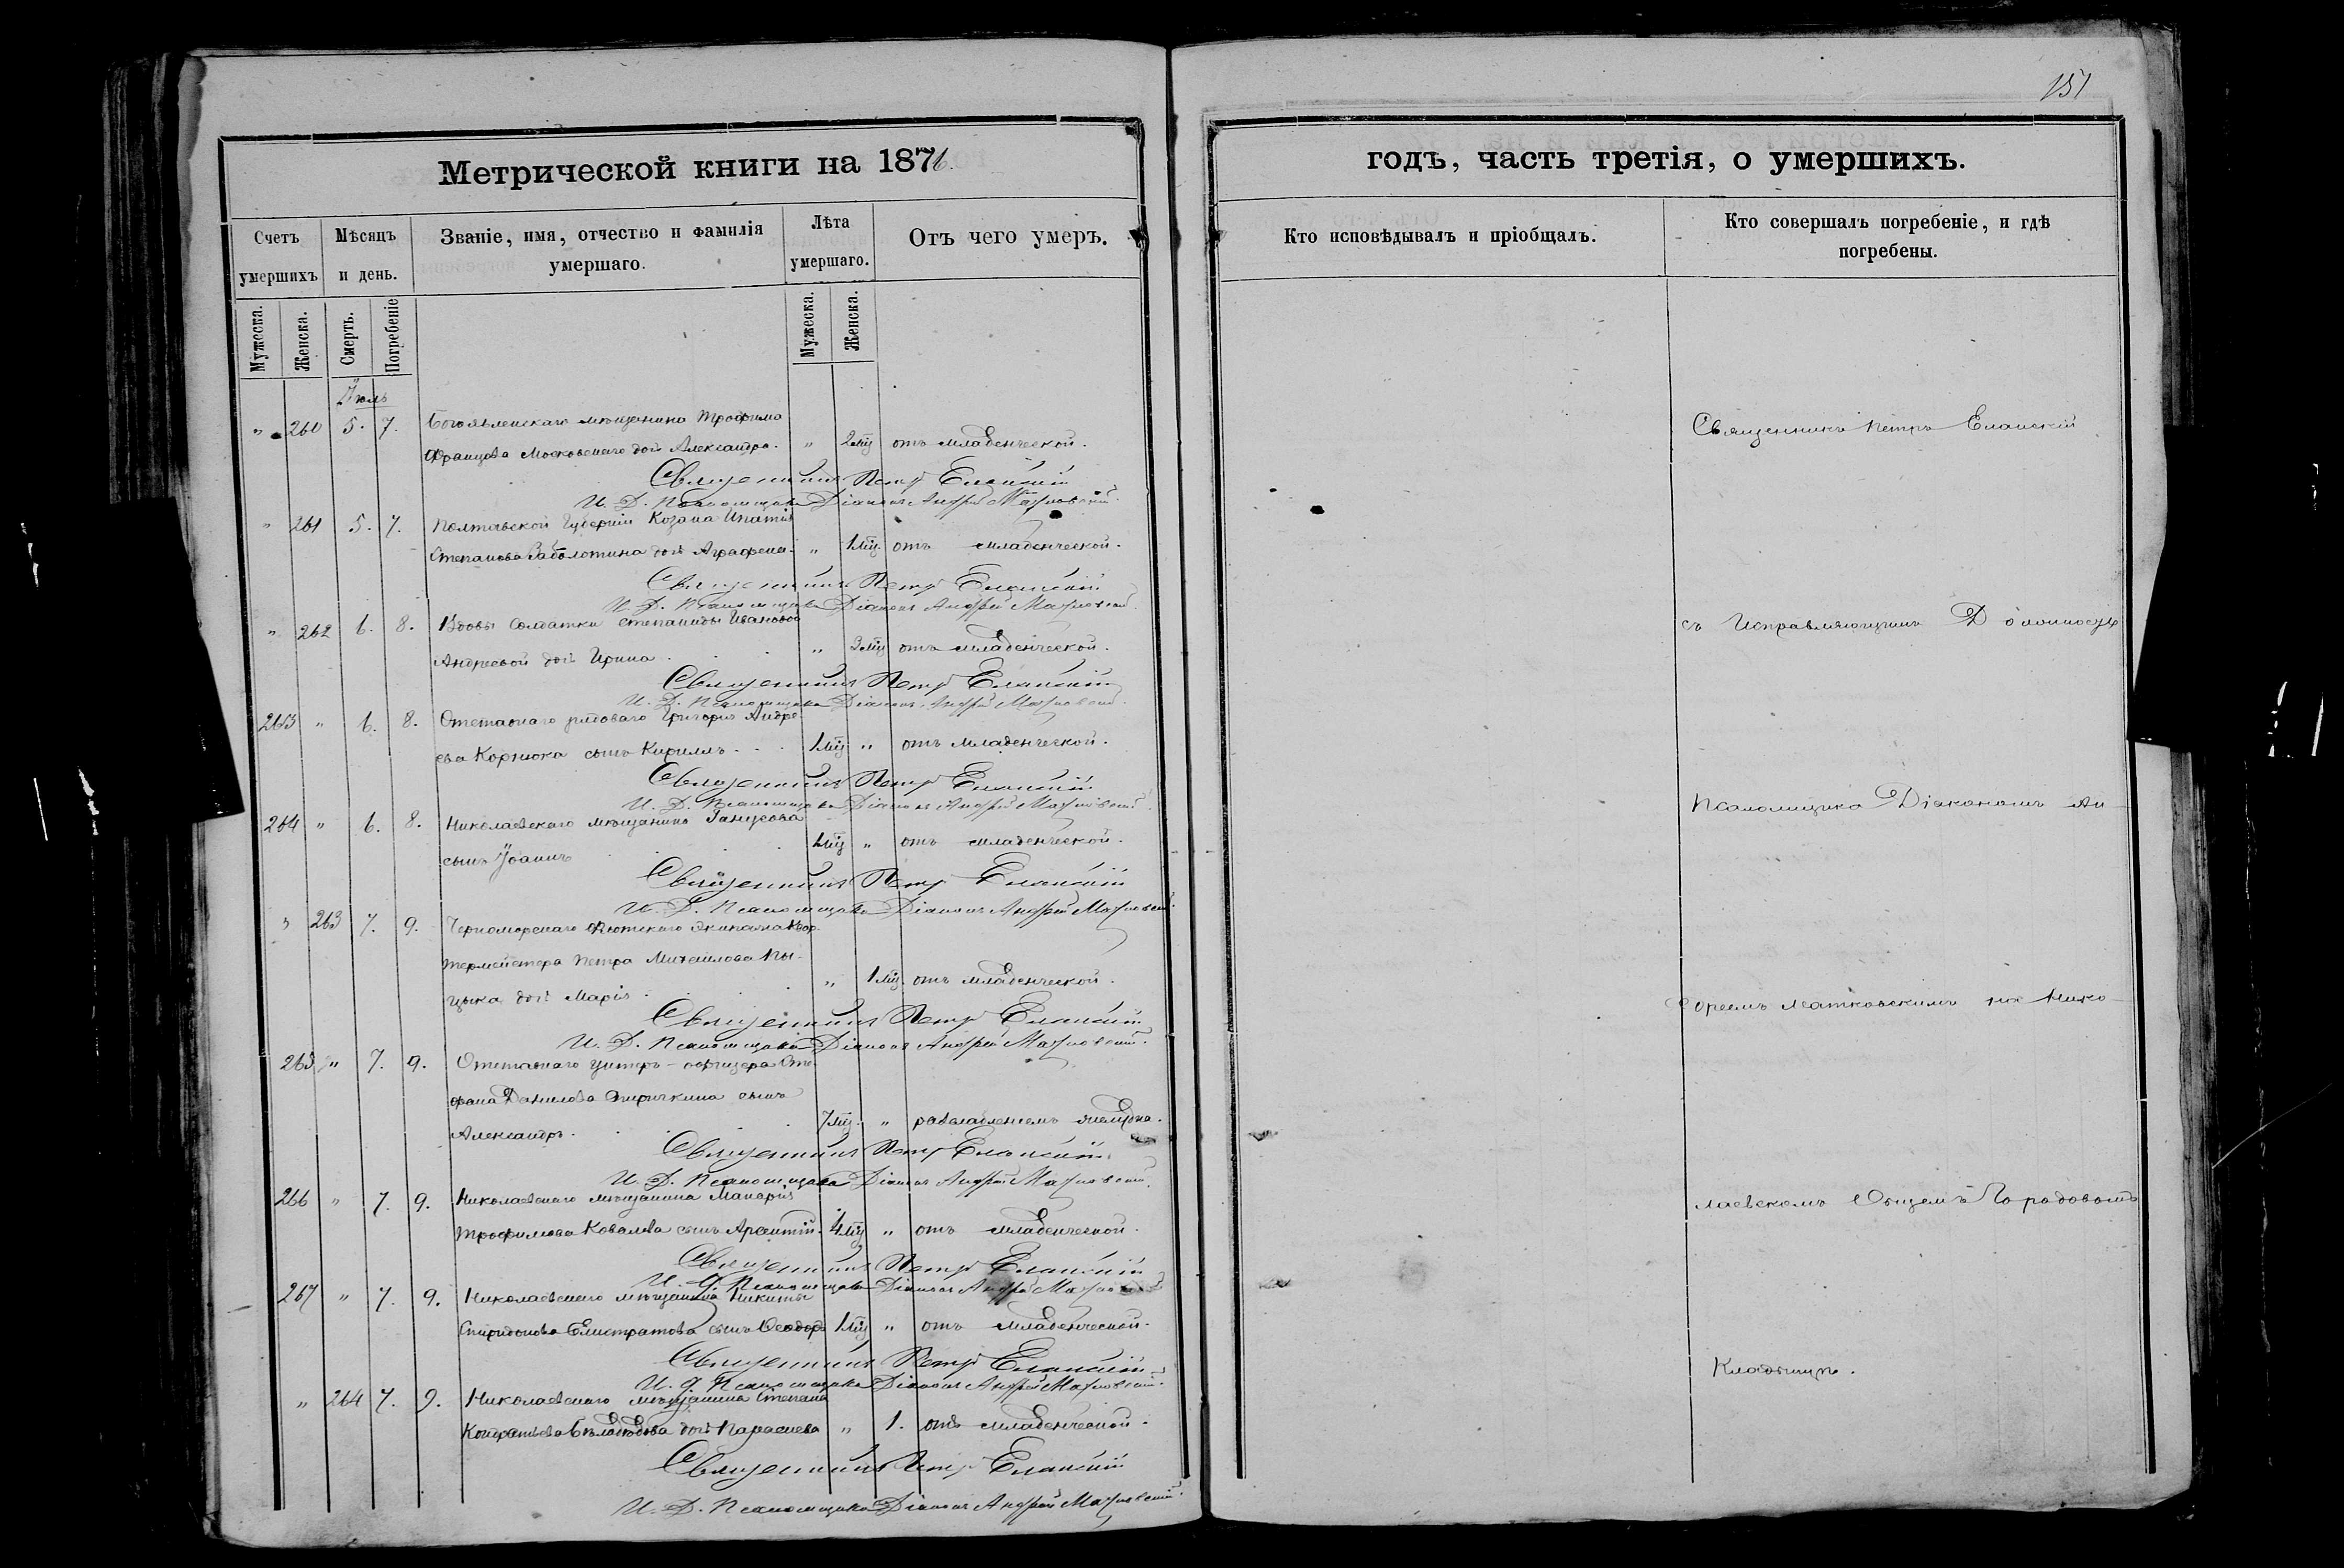 151
Метрической книги на 1876.
годъ, часть третія, о умершихъ.
Счетъ умершихъ
Мѣсяцъ и день.
Званіе, имя, отчество и фамилія умершаго.
Лѣта умершаго.
Отъ чего умеръ.
Кто исповѣдывалъ и пріобщалъ.
Кто совершалъ погребеніе, и гдѣ погребены.
Мужеска.
Женска.
Смерть.
Погребеніе
Мужеска.
Женска.
Іюль
" 260 5. 7. Богоявленскаго мѣщанина Трофима
Францова Московскаго дочь Александра. " 2 мц отъ младенческой.
Священникъ Петръ Еланскій
И. Д. Псаломщика Діаконъ Андрей
" 261 5. 7. Полтавской Губерніи Козака Ипатія
Степанова Заболотина дочь Аграфена. " 1 мц. отъ младенческой.
Священникъ Петръ Еланскій
И. Д. Псаломщика Діаконъ Андрей
" 262 6. 8. Вдовы Солдатки Степаниды Ивановой
Андреевой дочь Ирина . . . " 3 мц отъ младенческой.
Священникъ Петръ Еланскій
И. Д. Псаломщика Діаконъ Андрей
263 " 6. 8. Отставнаго рядоваго Григорія Андре-
ева Корнюка сынъ Кириллъ . . . 1 мц " отъ младенческой.
Священникъ Петръ Еланскій
И. Д. Псаломщика Діаконъ Андрей
264 " 6. 8. Николаевскаго мѣщанина
сынъ Іоаннъ . . . 1 мц " отъ младенческой.
Священникъ Петръ Еланскій
И. Д. Псаломщика Діаконъ Андрей
" 263 7. 9. Черноморскаго Флотскаго экипажа Квар-
термейстера Петра Михайлова Пы-
цыка дочь Марія . . . " 1 мц. отъ младенческой.
Священникъ Петръ Еланскій
И. Д. Псаломщика Діаконъ Андрей
265 " 7. 9. Отставнаго Унтеръ-офицера Сте-
фана Данилова сынъ
Александръ . . . 7 мц. "
Священникъ Петръ Еланскій
И. Д. Псаломщика Діаконъ Андрей
266 " 7. 9. Николаевскаго мѣщанина Макарія
Трофимова Ковалева сынъ Арсентій. 4 мц " отъ младенческой.
Священникъ Петръ Еланскій
И. Д. Псаломщика Діаконъ Андрей
267 " 7. 9. Николаевскаго мѣщанина Никиты
Спиридонова Елистратова сынъ Ѳеодоръ 1 мц " отъ младенческой.
Священникъ Петръ Еланскій
И. Д. Псаломщика Діаконъ Андрей
" 264 7. 9. Николаевскаго мѣщанина Степана
Кондратьева дочь Параскева " 1. отъ младенческой.
Священникъ Петръ Еланскій
И. Д. Псаломщика Діаконъ Андрей
Священникъ Петръ Еланскій
съ Исправляющимъ Должность
Псаломщика Діакономъ Ан-
на Нико-
лаевскомъ Общемъ Городовомъ
Кладбищѣ.